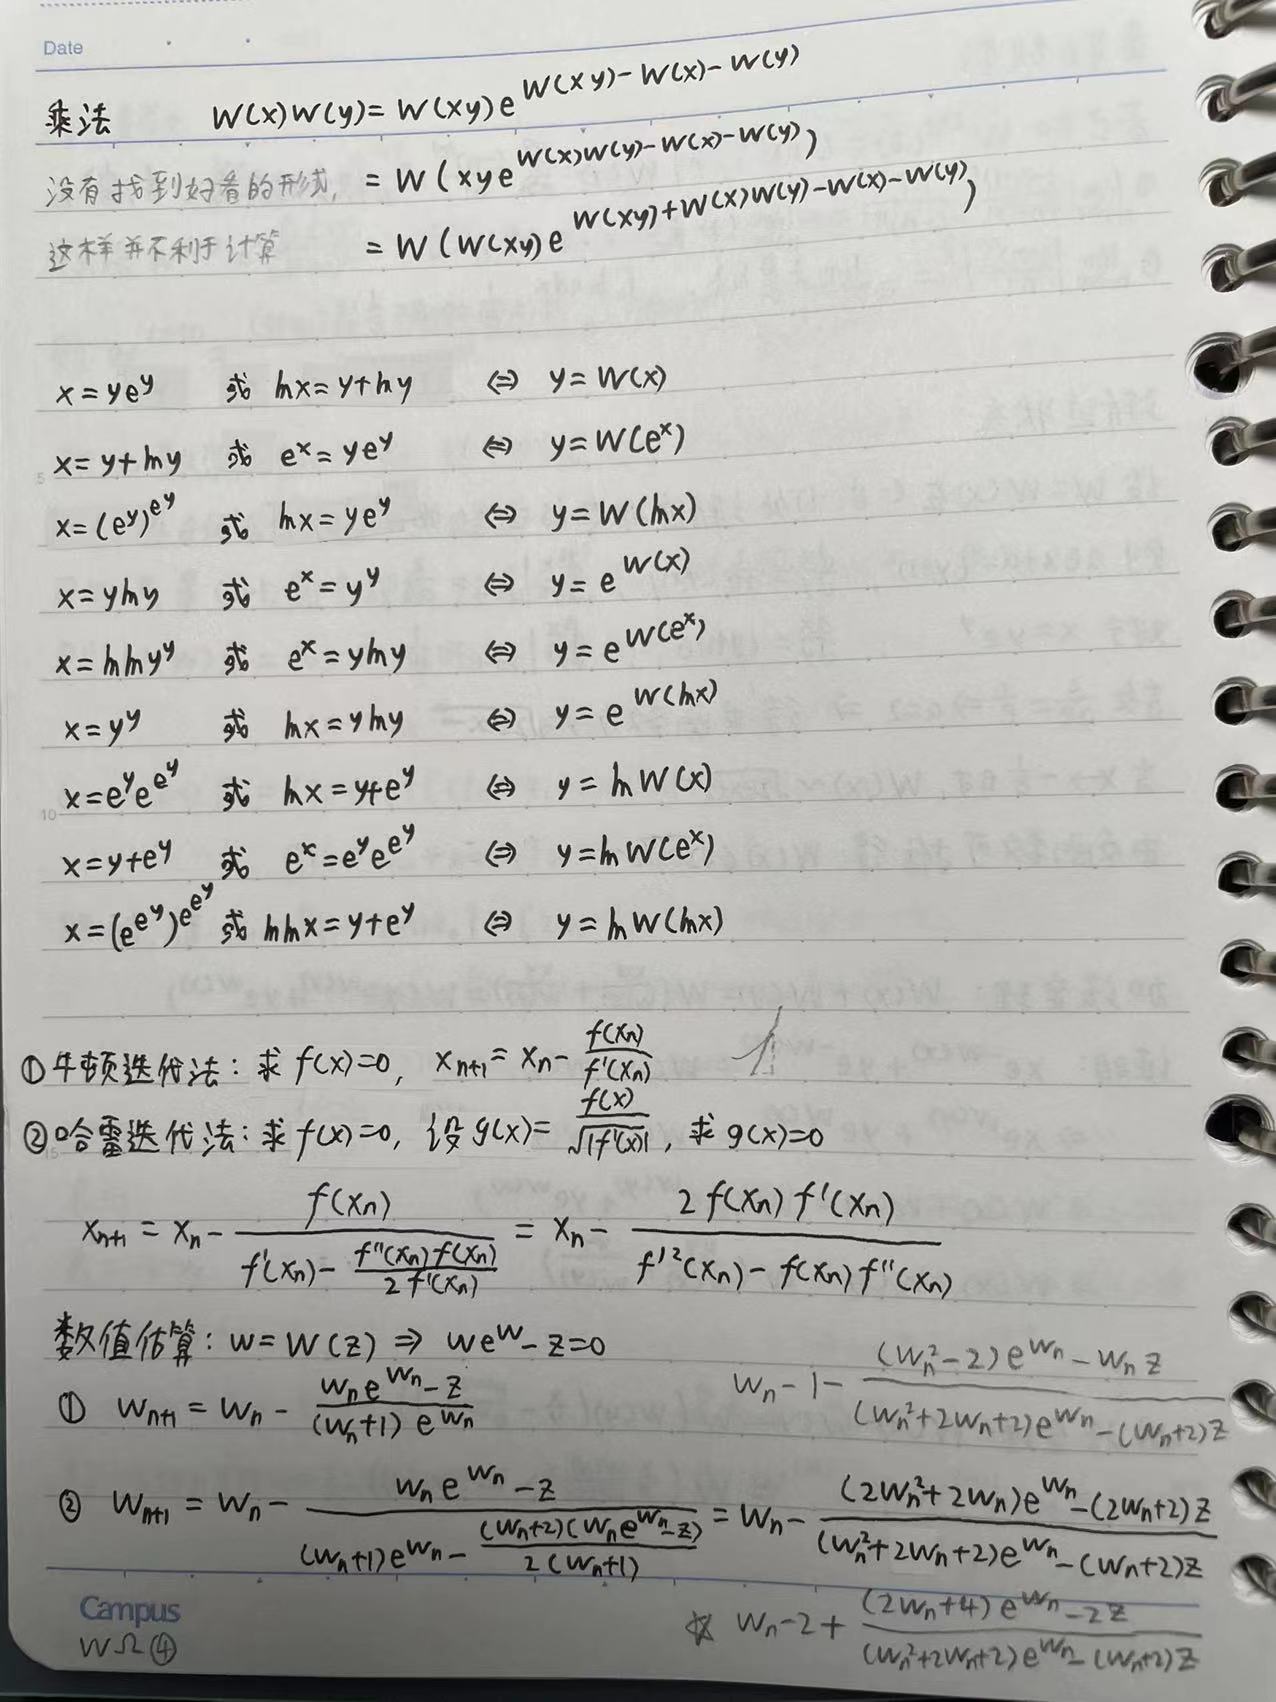 Date
乘法 W(x)W(y)=W(xy)e^{W(xy)-W(x)-W(y)}
没有找到好看的形式, =W(xye^{W(x)W(y)-W(x)-W(y)})
这样并不利于计算 =W(W(xy)e^{W(xy)+W(x)W(y)-W(x)-W(y)})
x=ye^y 或 lnx=y+lny ⇔ y=W(x)
5
x=y+lny 或 e^x=ye^y ⇔ y=W(e^x)
x=(e^y)^{e^y} 或 lnx=ye^y ⇔ y=W(lnx)
x=ylny 或 e^x=y^y ⇔ y=e^{W(x)}
x=lnlny^y 或 e^x=ylny ⇔ y=e^{W(e^x)}
x=y^y 或 lnx=ylny ⇔ y=e^{W(lnx)}
x=e^ye^{e^y} 或 lnx=y+e^y ⇔ y=lnW(x)
10
x=y+e^y 或 e^x=e^ye^{e^y} ⇔ y=lnW(e^x)
x=(e^{e^y})^{e^{e^y}} 或 lnlnx=y+e^y ⇔ y=lnW(lnx)
①牛顿迭代法:求f(x)=0, x_{n+1}=x_n-\frac{f(x_n)}{f'(x_n)}
②哈雷迭代法:求f(x)=0, 设g(x)=\frac{f(x)}{\sqrt{|f'(x)|}}, 求g(x)=0
15
x_{n+1}=x_n-\frac{f(x_n)}{f'(x_n)-\frac{f''(x_n)f(x_n)}{2f'(x_n)}}=x_n-\frac{2f(x_n)f'(x_n)}{f'^2(x_n)-f(x_n)f''(x_n)}
数值估算:w=W(z)⇒we^w-z=0
w_n-1-\frac{(w_n^2-2)e^{w_n}-w_nz}{(w_n^2+2w_n+2)e^{w_n}-(w_n+2)z}
① w_{n+1}=w_n-\frac{w_ne^{w_n}-z}{(w_n+1)e^{w_n}}
② w_{n+1}=w_n-\frac{w_ne^{w_n}-z}{(w_n+1)e^{w_n}-\frac{(w_n+2)(w_ne^{w_n}-z)}{2(w_n+1)}}=w_n-\frac{(2w_n^2+2w_n)e^{w_n}-(2w_n+2)z}{(w_n^2+2w_n+2)e^{w_n}-(w_n+2)z}
☆ w_n-2+\frac{(2w_n+4)e^{w_n}-2z}{(w_n^2+2w_n+2)e^{w_n}-(w_n+2)z}
Campus
WΩ④